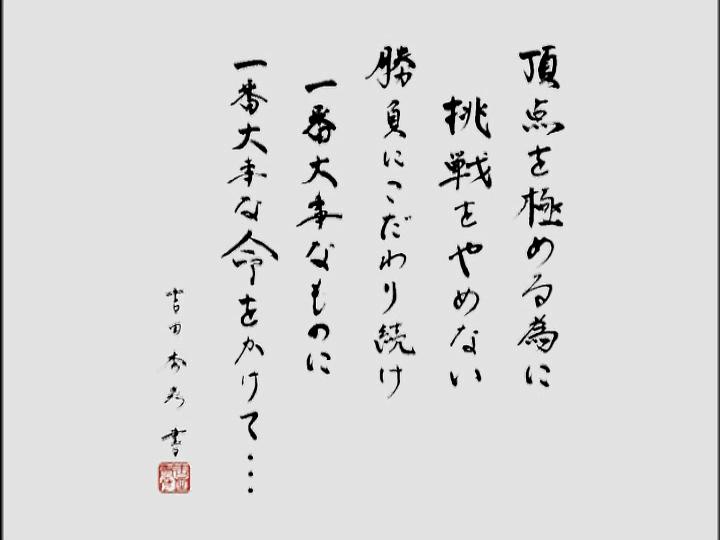 頂点を極める為に
挑戦をやめない
勝負にこだわり続け
一番大事なものに
一番大事な命をかけて…
吉田 書